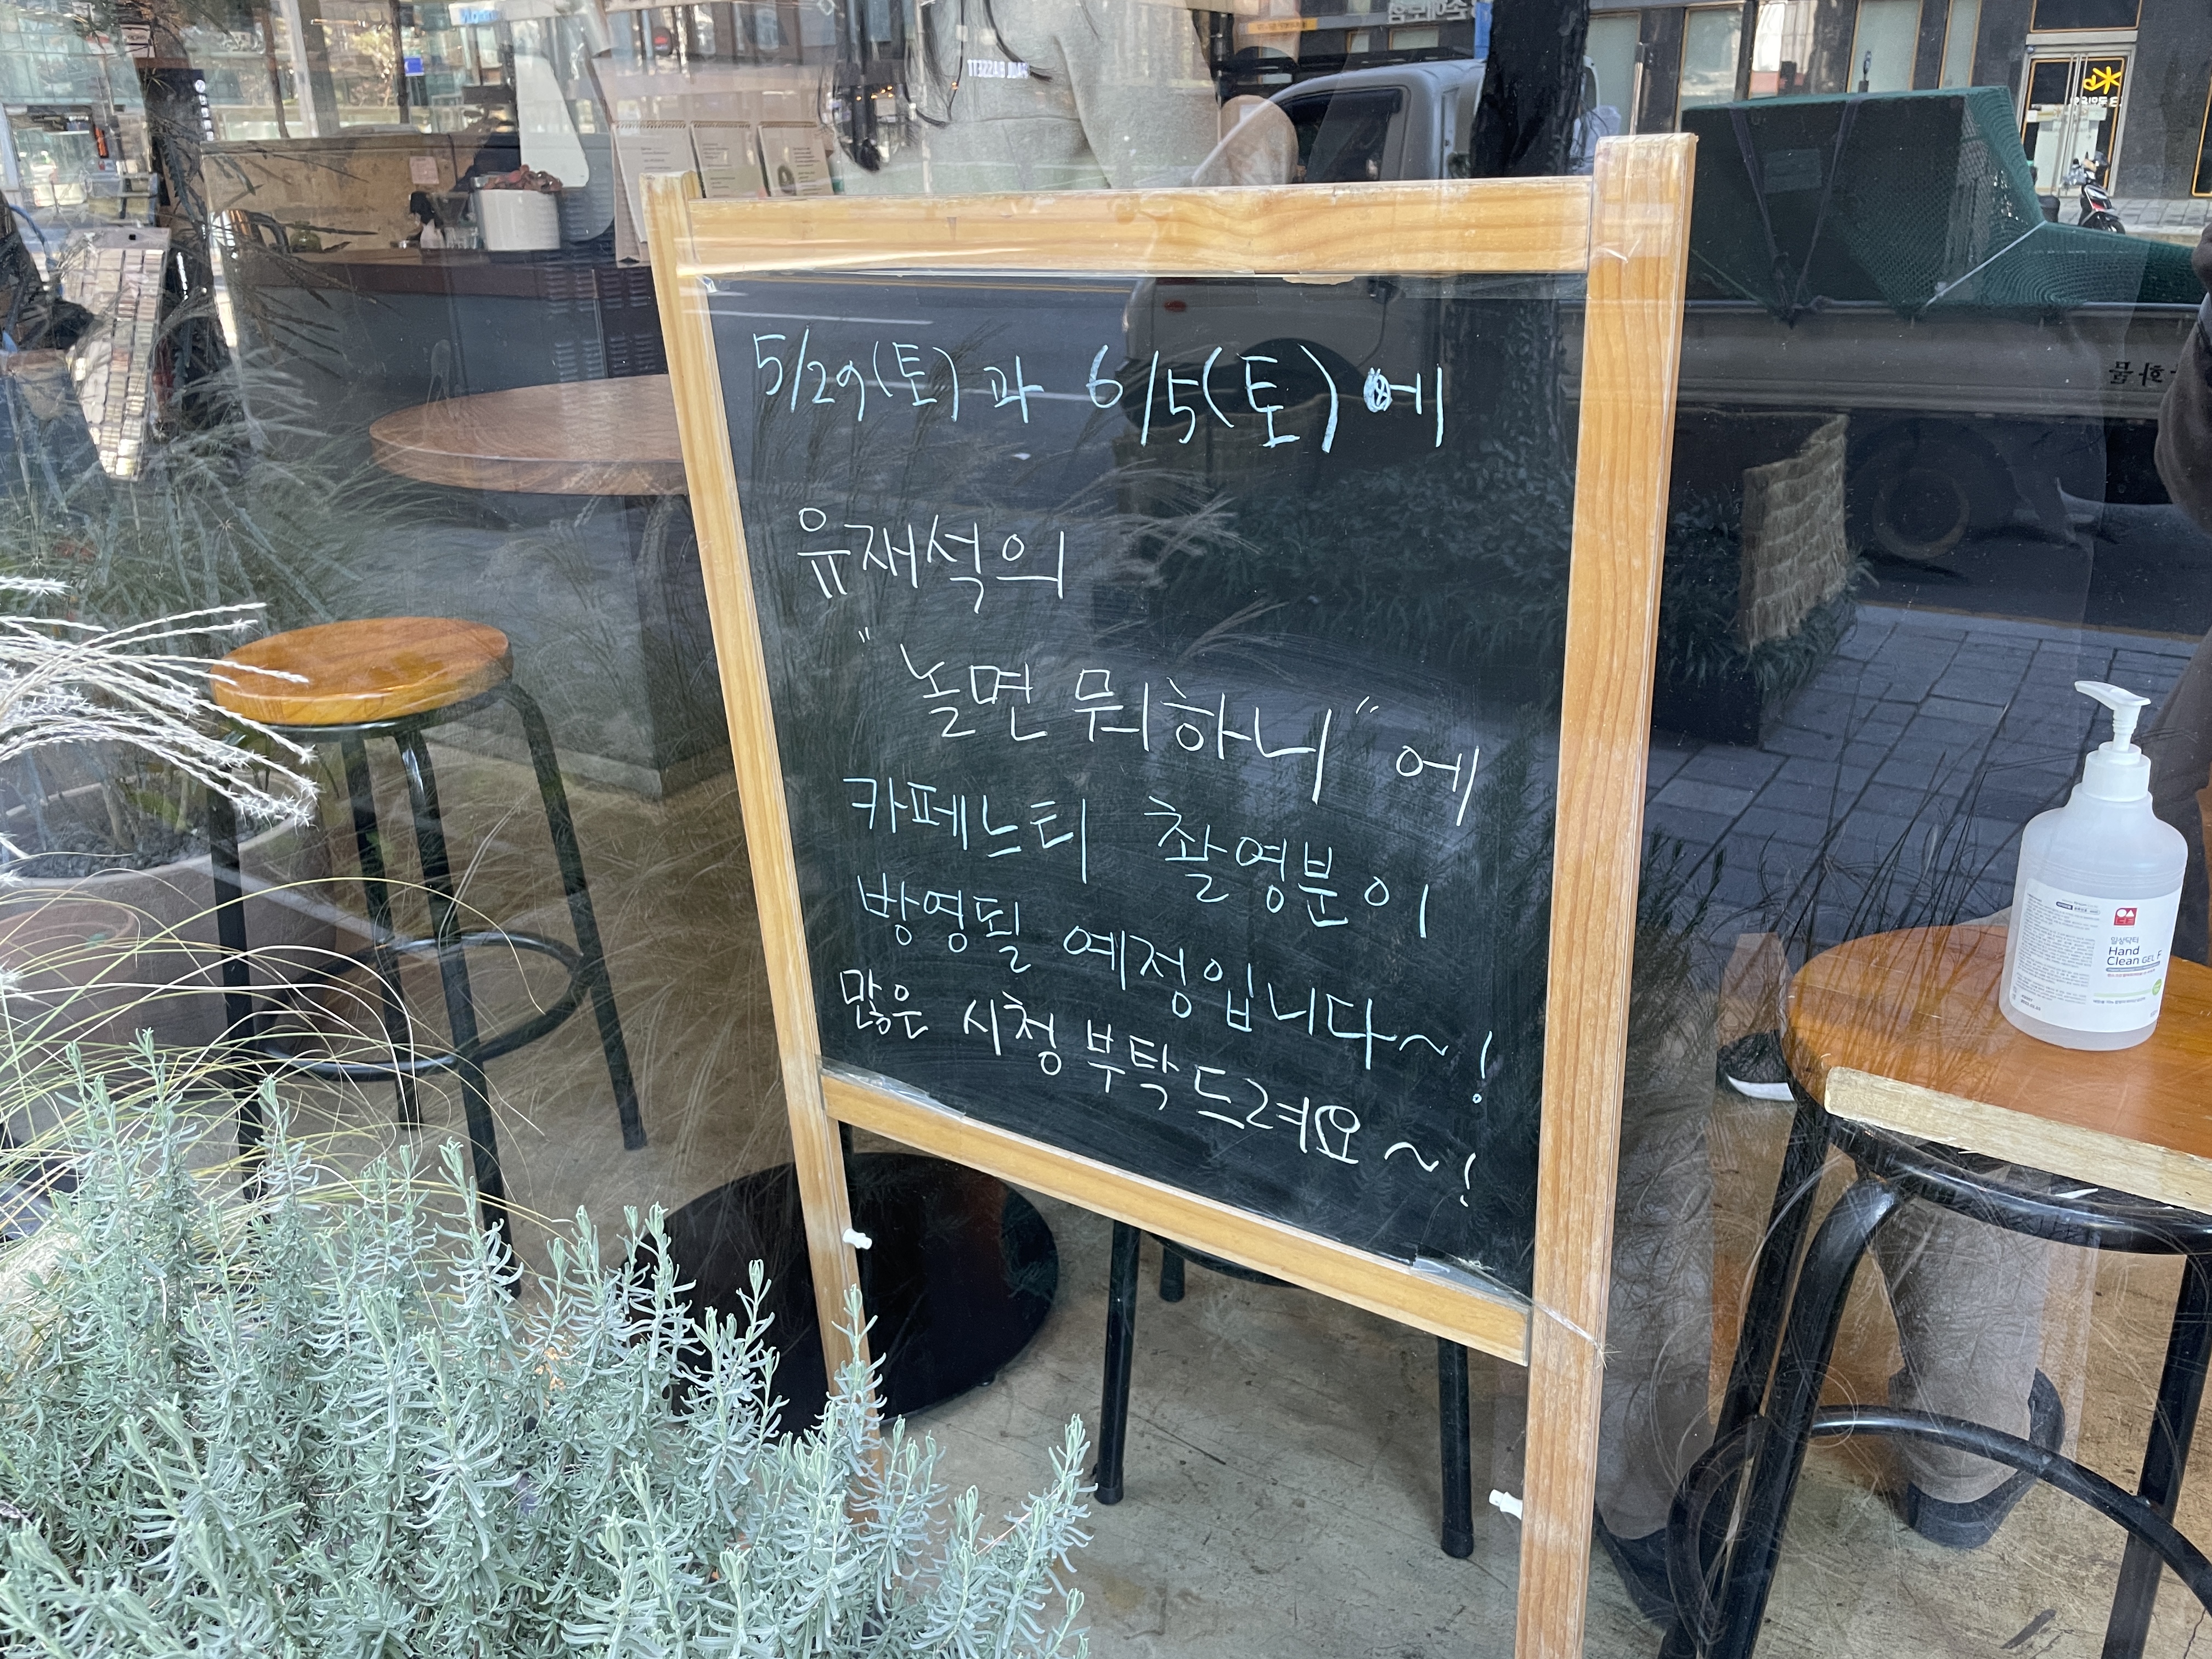 5/29(토)과 6/5(토)에
유재석의
"놀면 뭐하니"에
카페느티 촬영분이
방영될 예정입니다~!
많은 시청 부탁드려요~!
일상닥터
Hand
Clean GEL F
PAUL BASSETT